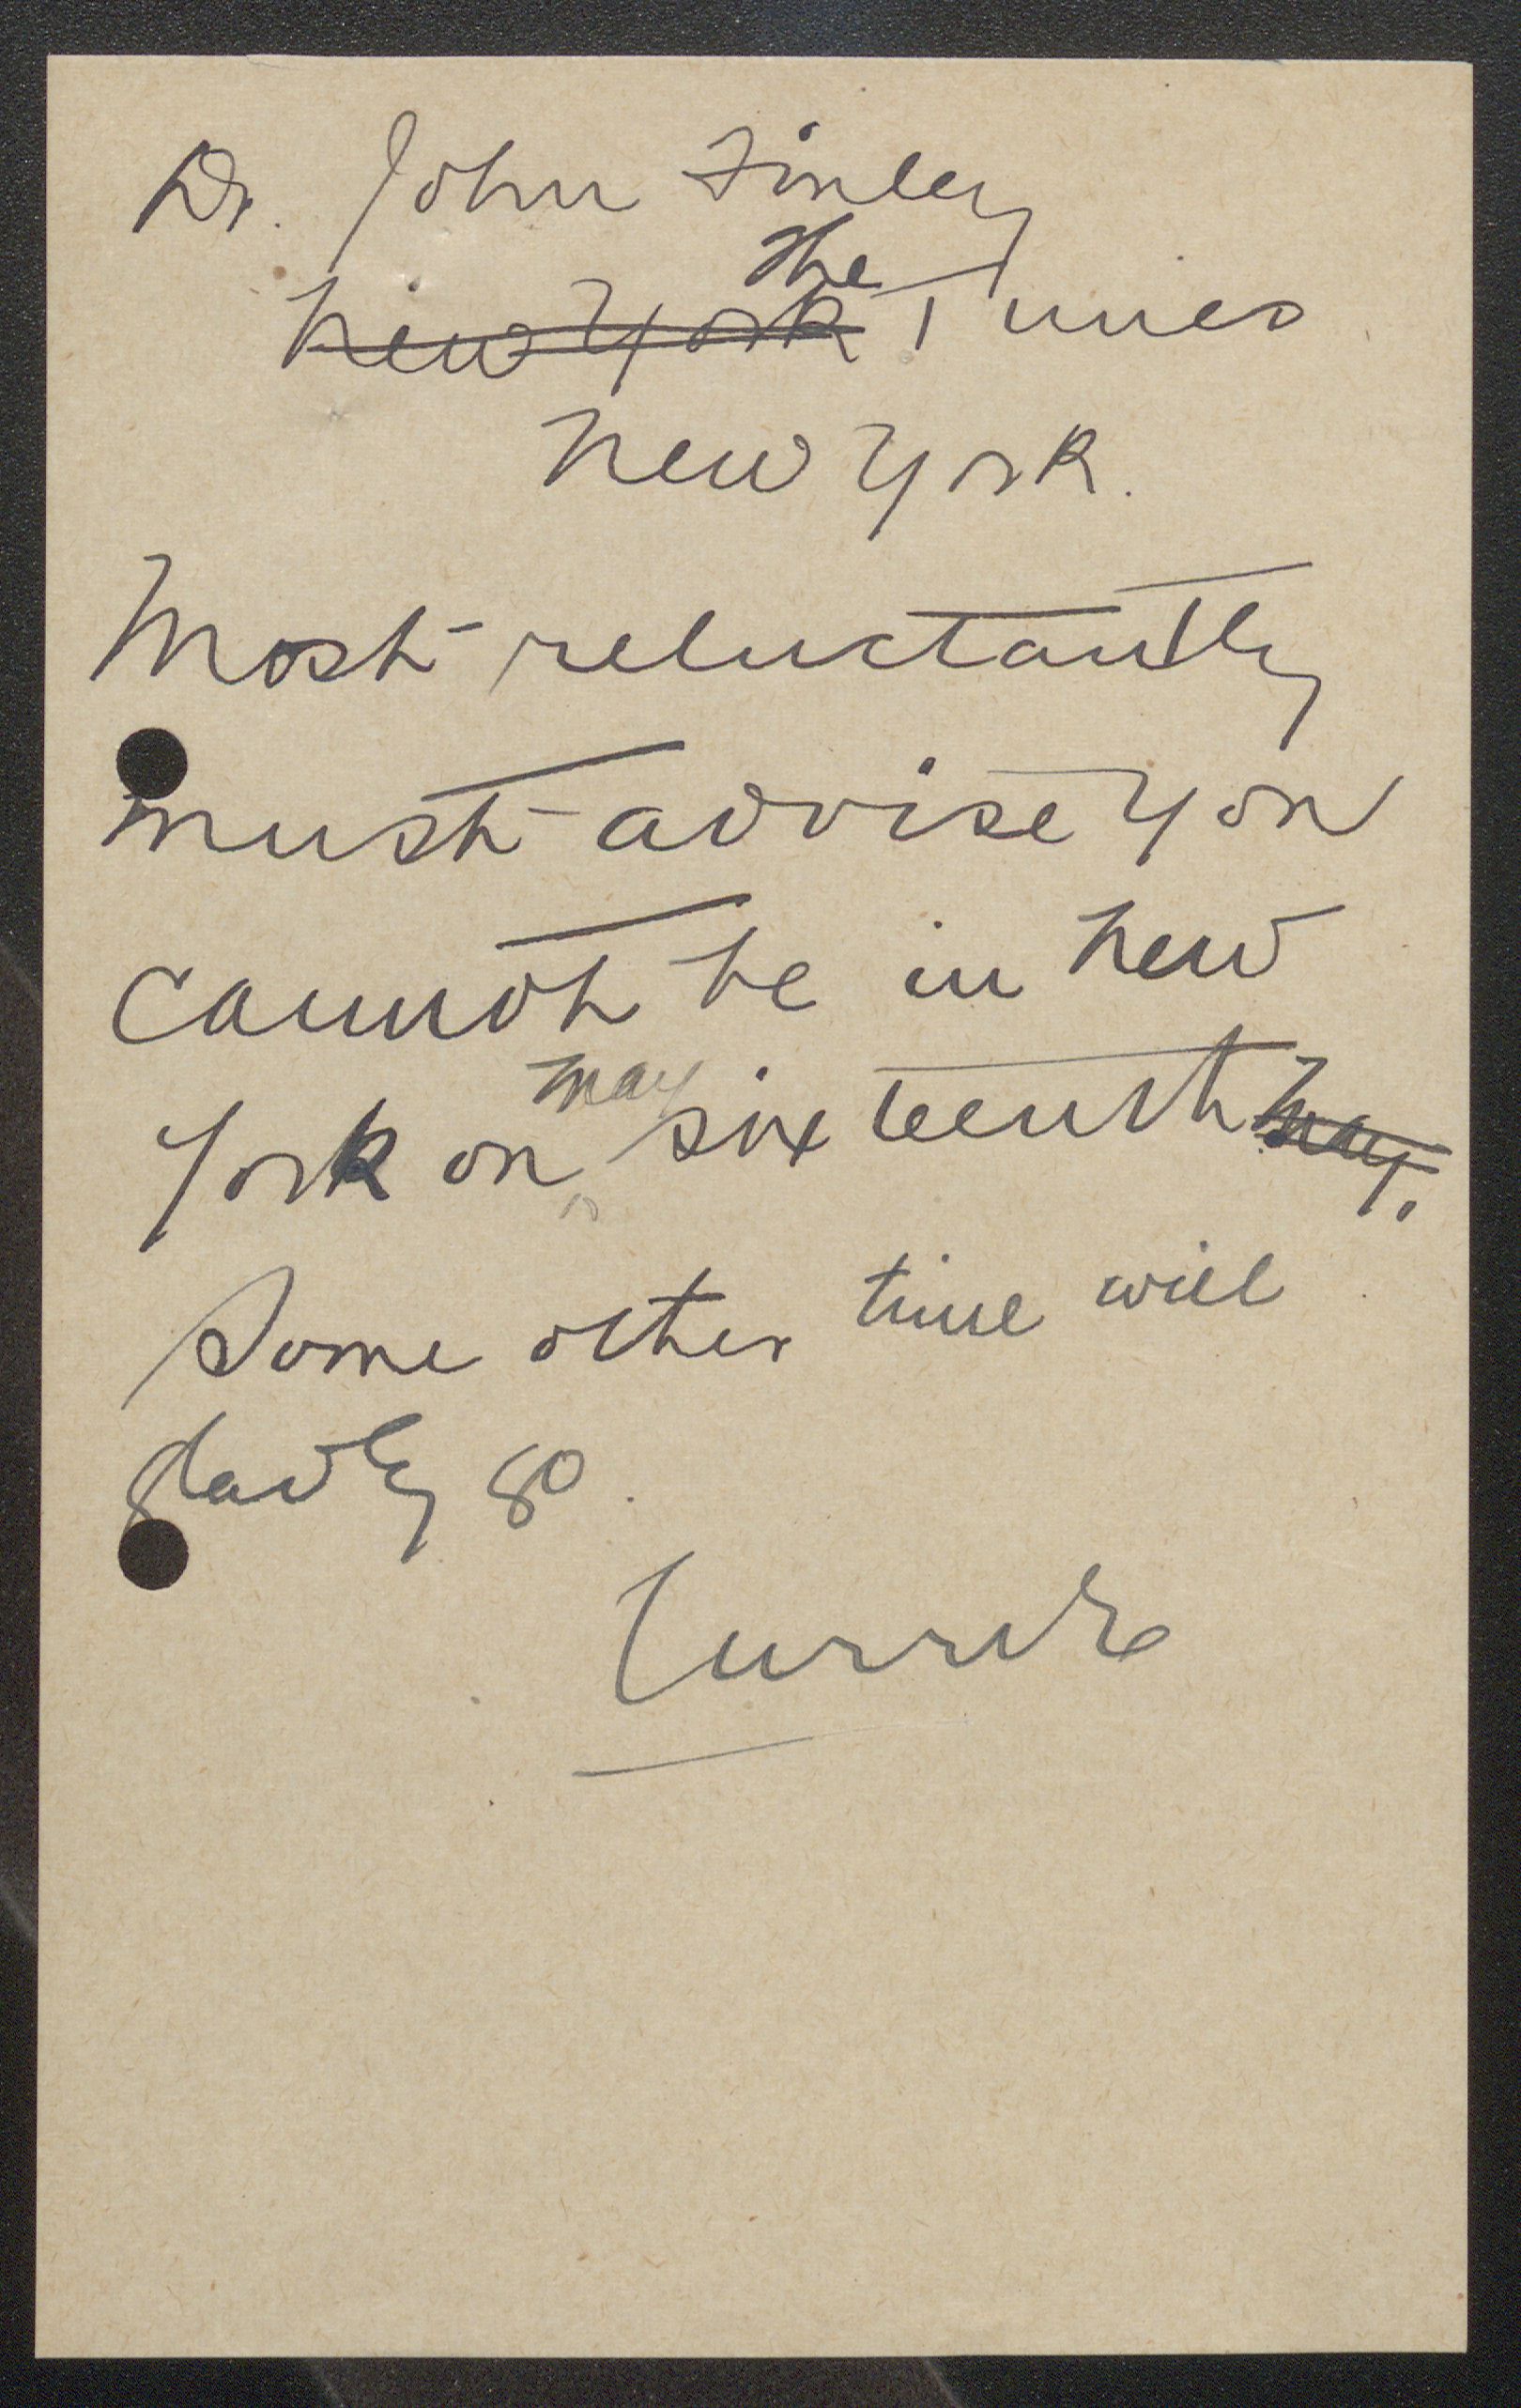 Dr. John Finley
~~New York~~ The Times
New York.
Most reluctantly
must advise you
cannot be in New
York on May sixteenth ~~May~~.
Some other time will
gladly go.
Currie